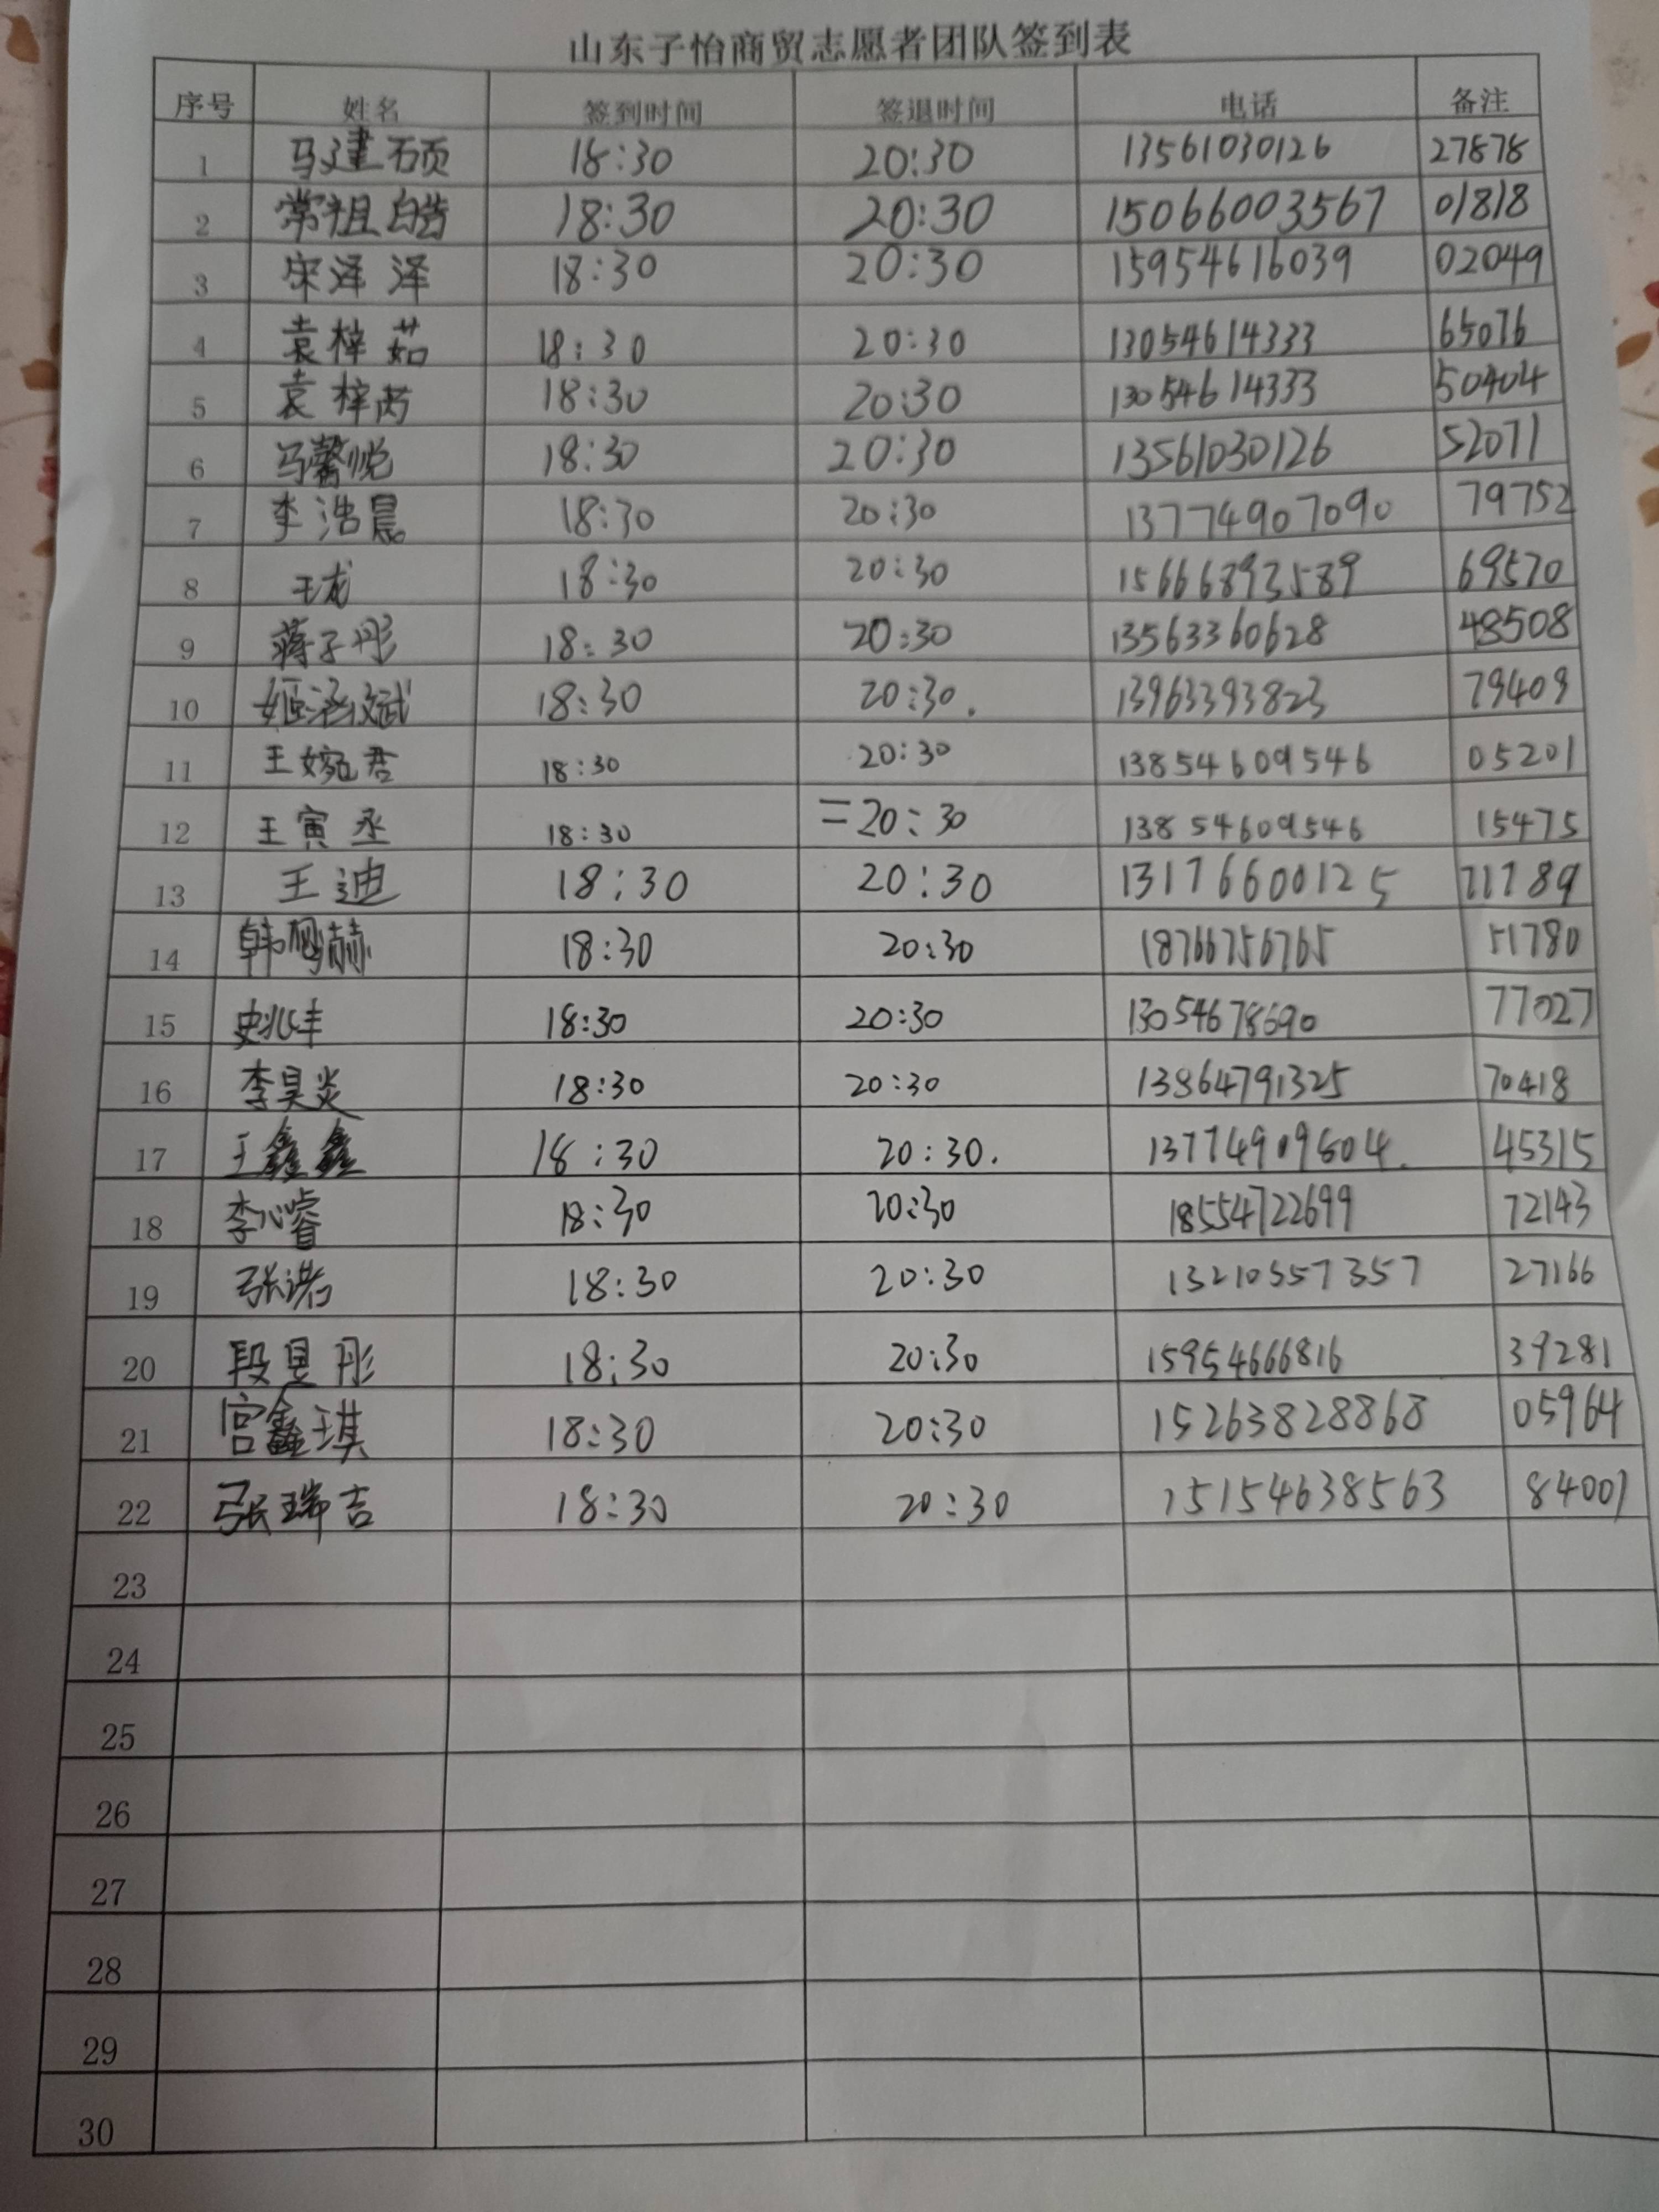 山东子怡商贸志愿者团队签到表
序号 姓名 签到时间 签退时间 电话 备注
1 马建硕 18:30 20:30 13561030126 27878
2 常祖皓 18:30 20:30 15066003567 01818
3 宋泽泽 18:30 20:30 15954616039 02049
4 袁梓茹 18:30 20:30 13054614333 65076
5 袁梓芮 18:30 20:30 13054614333 50404
6 马馨悦 18:30 20:30 13561030126 52071
7 李浩晨 18:30 20:30 13774907090 79752
8 王龙 18:30 20:30 15666893589 69570
9 蒋子彤 18:30 20:30 13563360628 48508
10 18:30 20:30. 13963393823 79409
11 王婉君 18:30 20:30 13854609546 05201
12 王寅丞 18:30 =20:30 13854609546 15475
13 王迪 18:30 20:30 13176600125 71789
14 18:30 20:30 18766756765 51780
15 史兆丰 18:30 20:30 13054678690 77027
16 李昊炎 18:30 20:30 13864791325 70418
17 王鑫鑫 18:30 20:30. 45315
18 李心睿 18:30 20:30 18554722699 72143
19 张诺 18:30 20:30 13210357357 27166
20 段昱彤 18:30 20:30 15954666816 39281
21 宫鑫琪 18:30 20:30 15263828868 05964
22 张瑞吉 18:30 20:30 15154638563 84001
23
24
25
26
27
28
29
30